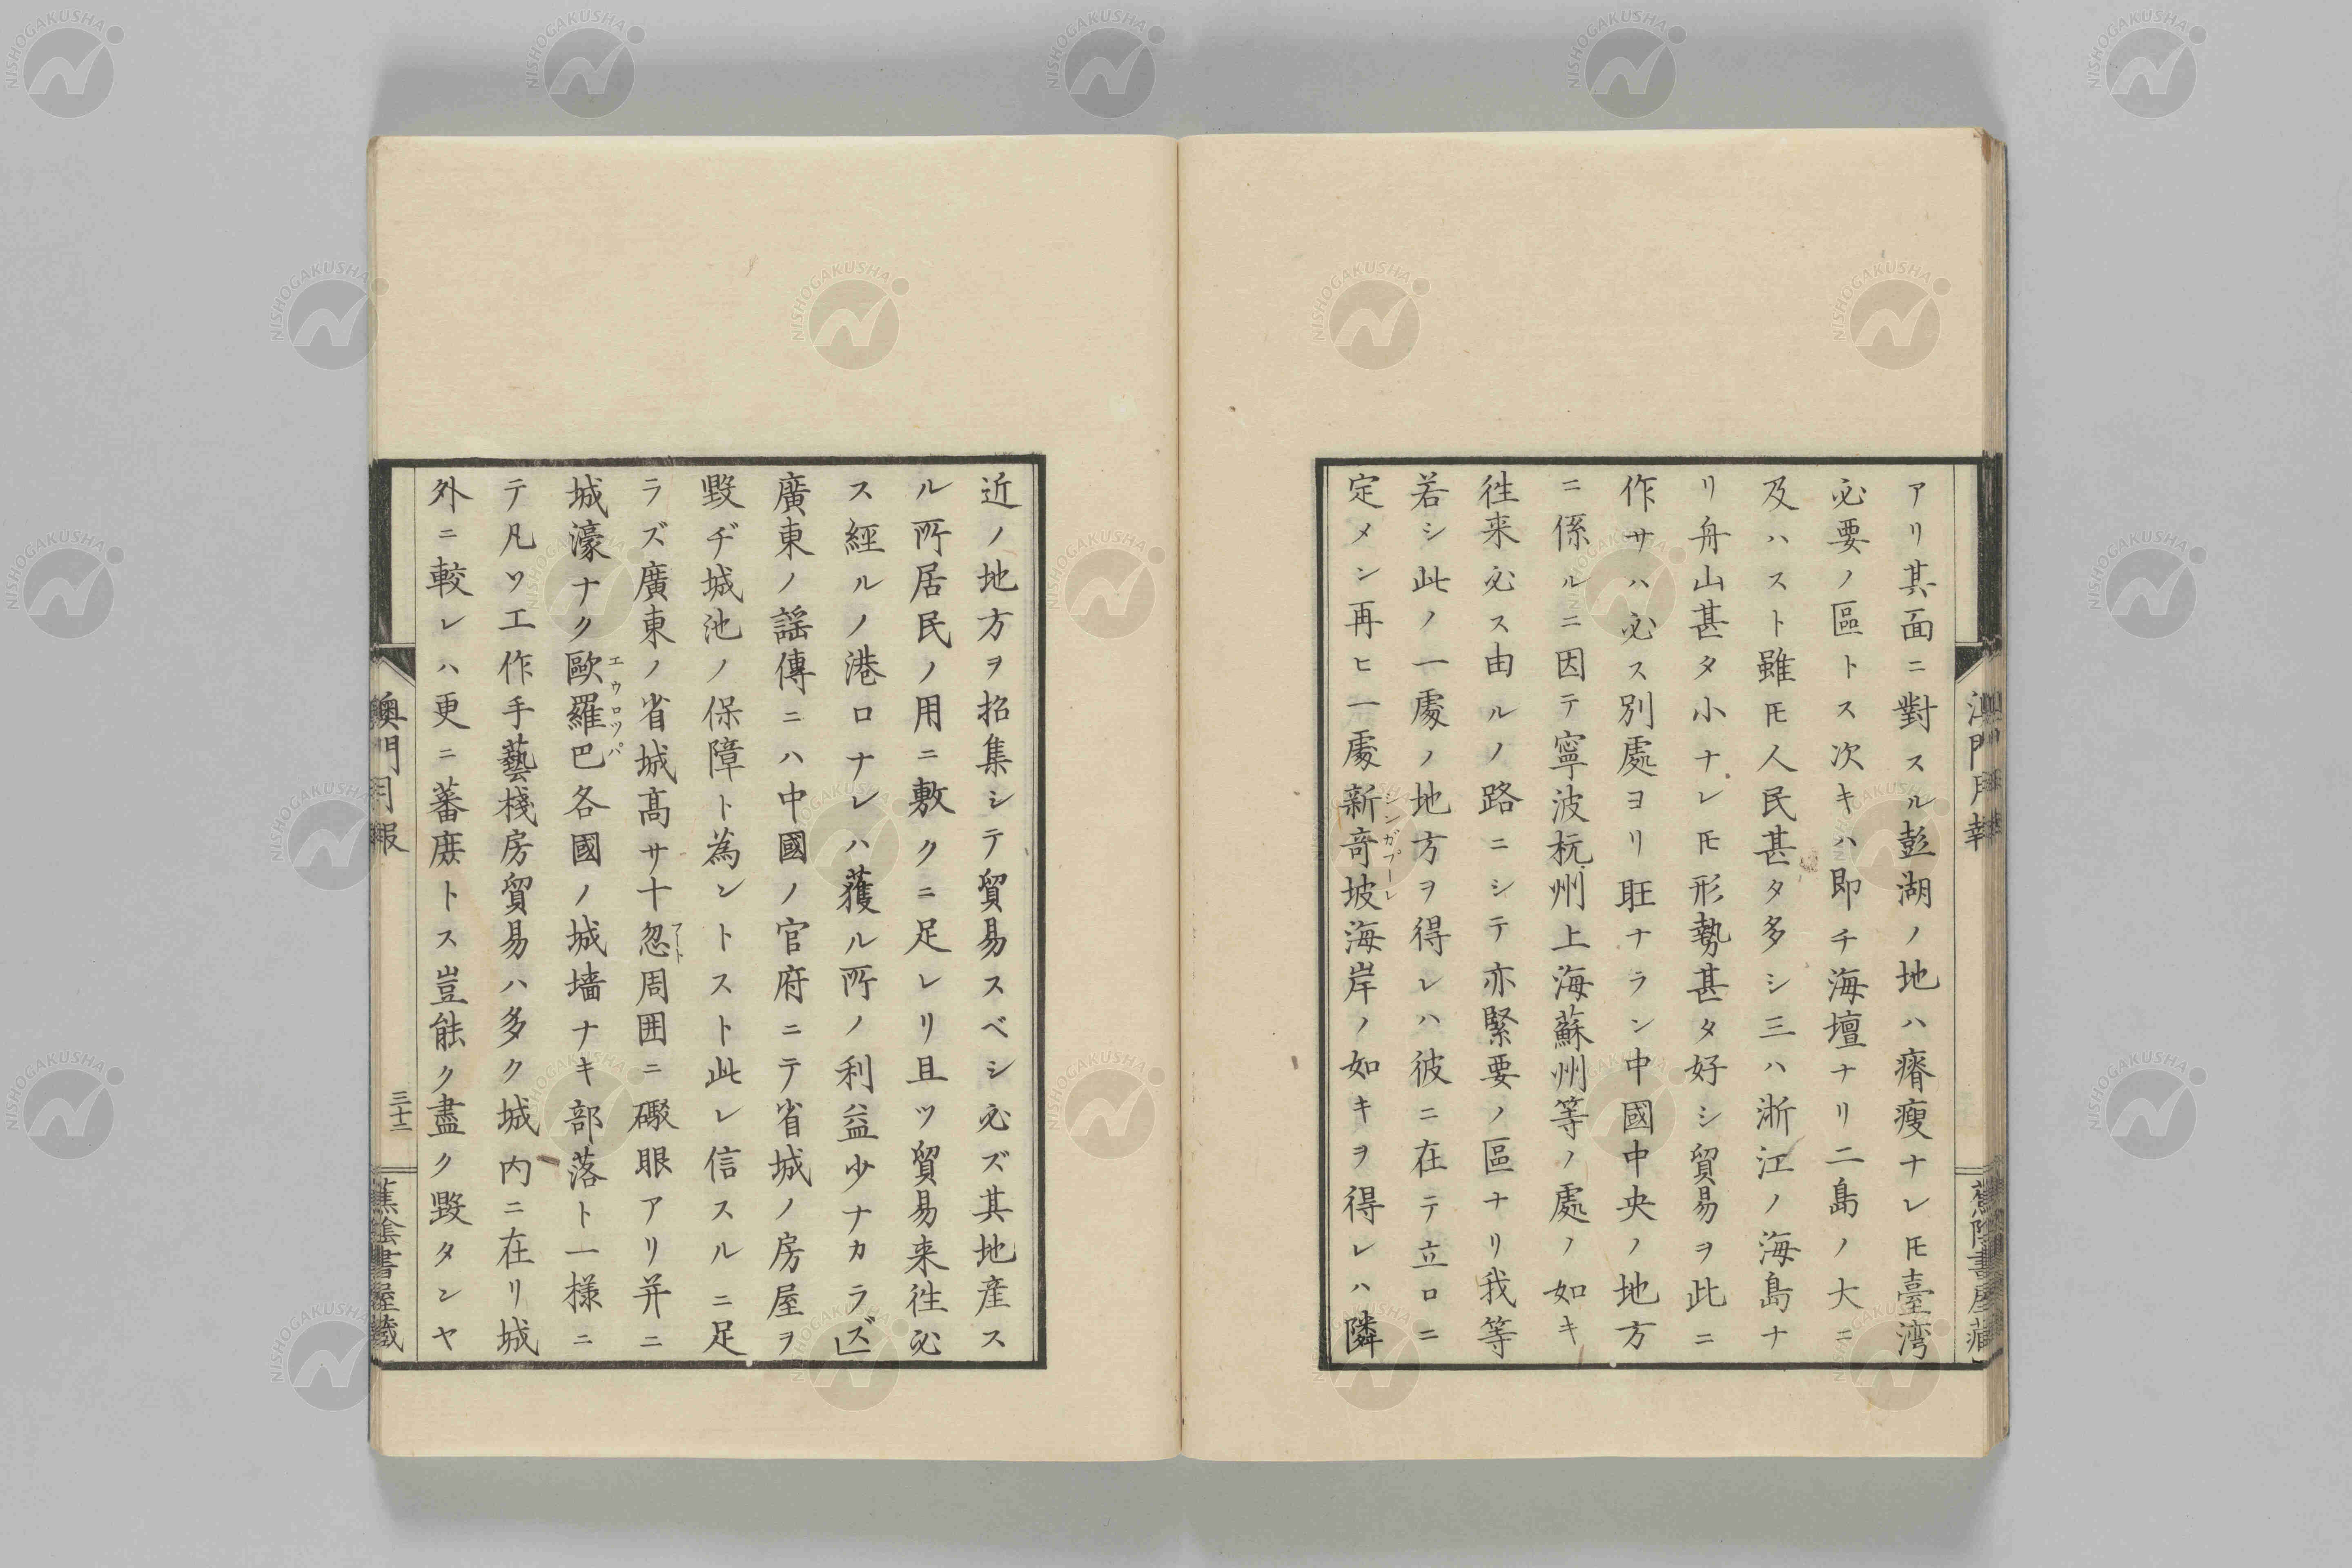 アリ其面ニ對スル彭湖ノ地ハ瘠瘦ナレ𪜈臺湾
必要ノ區トス次キハ即チ海壇ナリ二島ノ大ニ
及ハスト雖𪜈人民甚タ多シ三ハ浙江ノ海島ナ
リ舟山甚タ小ナレ𪜈形勢甚タ好シ貿易ヲ此ニ
作サハ必ス別處ヨリ旺ナラン中國中央ノ地方
ニ係ルニ因テ寧波杭州上海蘇州等ノ處ノ如キ
徃来必ス由ルノ路ニシテ亦緊要ノ區ナリ我等
若シ此ノ一處ノ地方ヲ得レハ彼ニ在テ立ロニ
定メン再ヒ一處新竒坡海岸ノ如キヲ得レハ隣
シンガプーレ
澳門月報
蕉陰書屋藏
近ノ地方ヲ招集シテ貿易スベシ必ズ其地産ス
ル所居民ノ用ニ敷クニ足レリ且ツ貿易来徃必
ス經ルノ港口ナレハ獲ル所ノ利益少ナカラズ」
廣東ノ謡傳ニハ中國ノ官府ニテ省城ノ房屋ヲ
毀チ城池ノ保障ト為ントスト此レ信スルニ足
ラズ廣東ノ省城髙サ十忽周囲ニ礮眼アリ并ニ
フート
城濠ナク歐羅巴各國ノ城墻ナキ部落ト一様ニ
エウロツパ
テ凡ソ工作手藝棧房貿易ハ多ク城内ニ在リ城
外ニ較レハ更ニ蕃庶トス豈能ク盡ク毀タンヤ
澳門月報
三十二
蕉陰書屋藏
NISHOGAKUSHA